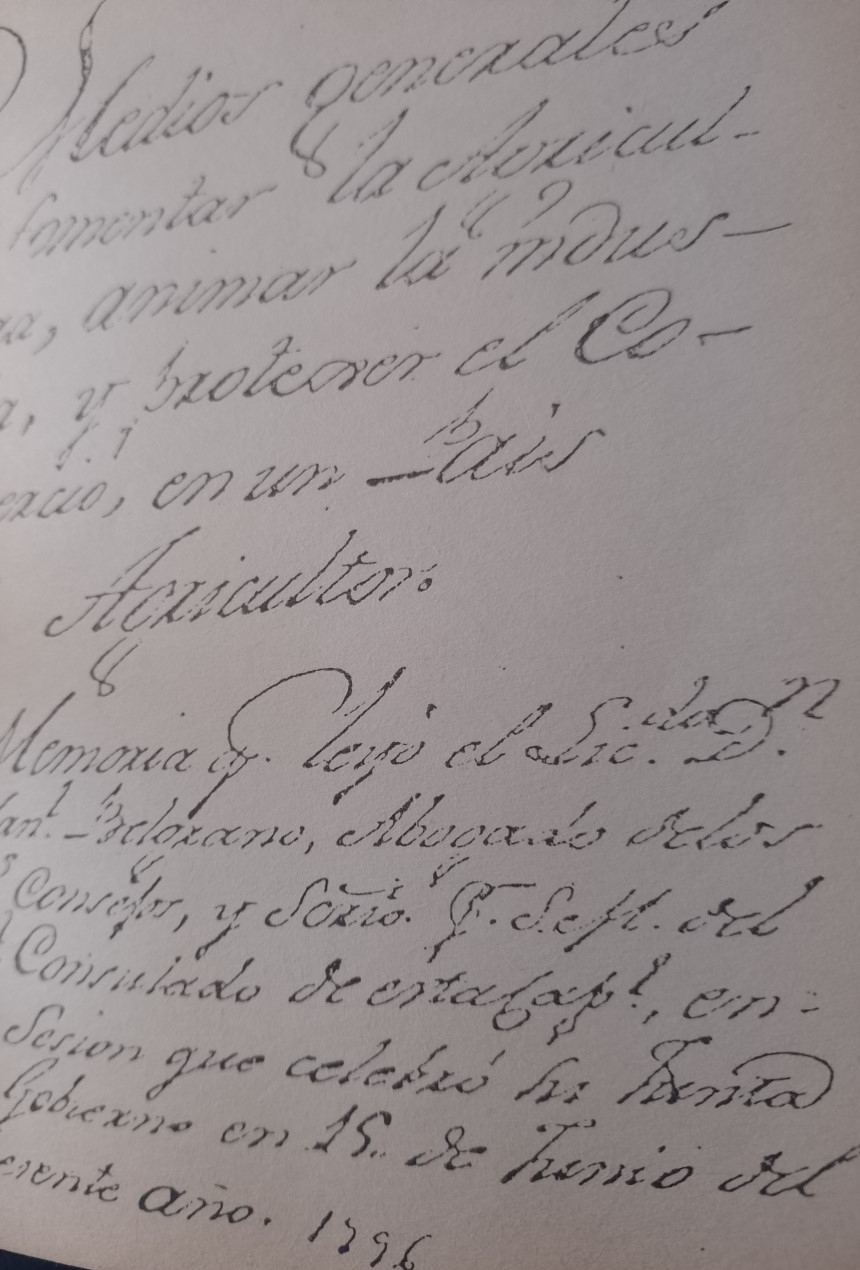 Medios generales
fomentar la Agricul-
ra, animar la indus-
a, y proteger el Co-
ercio, en un Pais
Agricultor.
Memoria q.e leyó el Lic.do D.n
Man.l Belgrano, Abogado de los
Consejos, y Sõrio. P. S.M. del
Consulado de esta Cap.l, en-
Sesion que celebró su Junta
Gobierno en 15. de Junio del
esente año. 1796